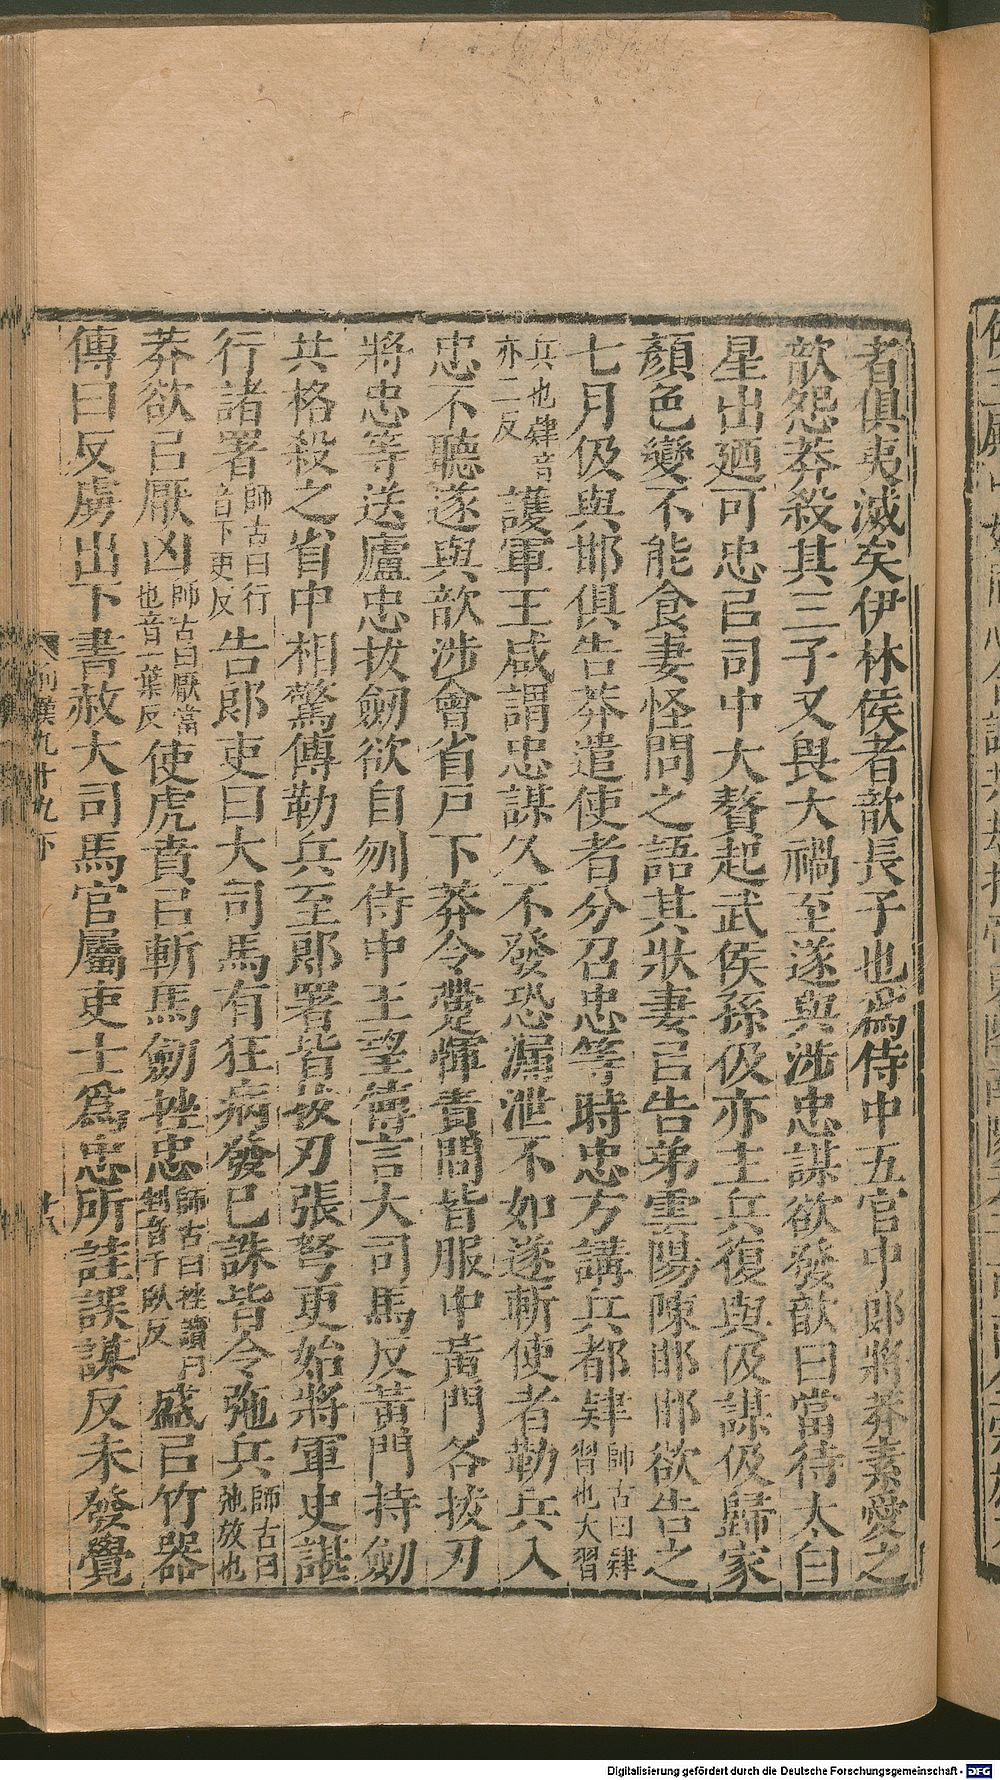 者俱夷滅矣伊休侯者歆長子也爲侍中五官中郎將莽素愛之
歆怨莽殺其三子又畏大禍至遂與涉忠謀欲發歆曰當待太白
星出廼可忠㠯司中大贅起武侯孫伋亦主兵復與伋謀伋歸家
顏色變不能食妻怪問之語其狀妻㠯告弟雲陽陳邯邯欲告之
七月伋與邯俱告莽遣使者分召忠等時忠方講兵都肄師古曰肄習也大習
兵也肄音亦二反護軍王咸謂忠謀久不發恐漏泄不如遂斬使者勒兵入
忠不聽遂與歆涉會省戸下莽令𧾷惲責問皆服中黃門各拔刃
將忠等送廬忠拔劒欲自刎侍中王望傳言大司馬反黃門持劒
共格殺之省中相驚傳勒兵至郎署皆拔刃張弩更始將軍史諶
行諸署師古曰行音下更反告郎吏曰大司馬有狂病發已誅皆令弛兵師古曰弛放也
莽欲㠯厭凶師古曰厭當也音一葉反使虎賁㠯斬馬劒挫忠師古曰挫讀曰剉音千臥反盛㠯竹器
傳曰反虜出下書赦大司馬官屬吏士爲忠所詿誤謀反未發覺
前漢九十九下
廿八
Digitalisierung gefördert durch die Deutsche Forschungsgemeinschaft - DFG